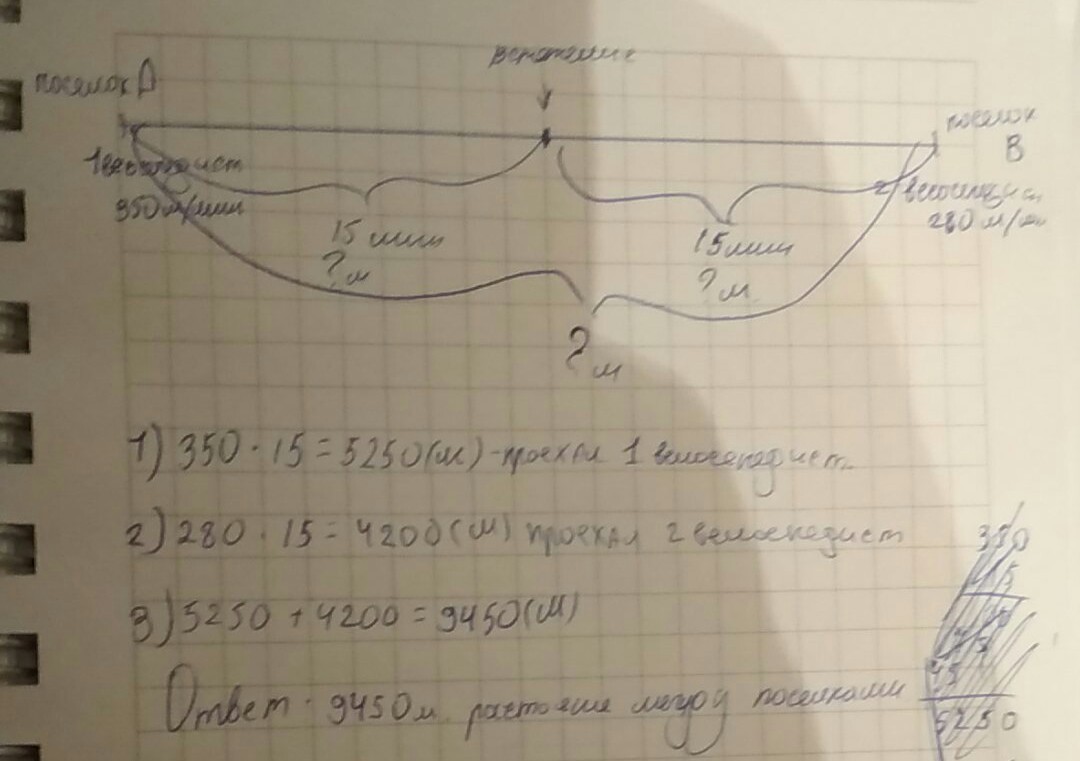 поселок А
встретились
поселок
В
1 велосипедист
350 м/мин
2 велосипедист
280 м/мин
15 мин
? м
15 мин
? м
? м
1) 350 · 15 = 5250 (м) - проехал 1 велосипедист
2) 280 · 15 = 4200 (м) проехал 2 велосипедист
3) 5250 + 4200 = 9450 (м)
Ответ: 9450 м между поселками
350
15
5250